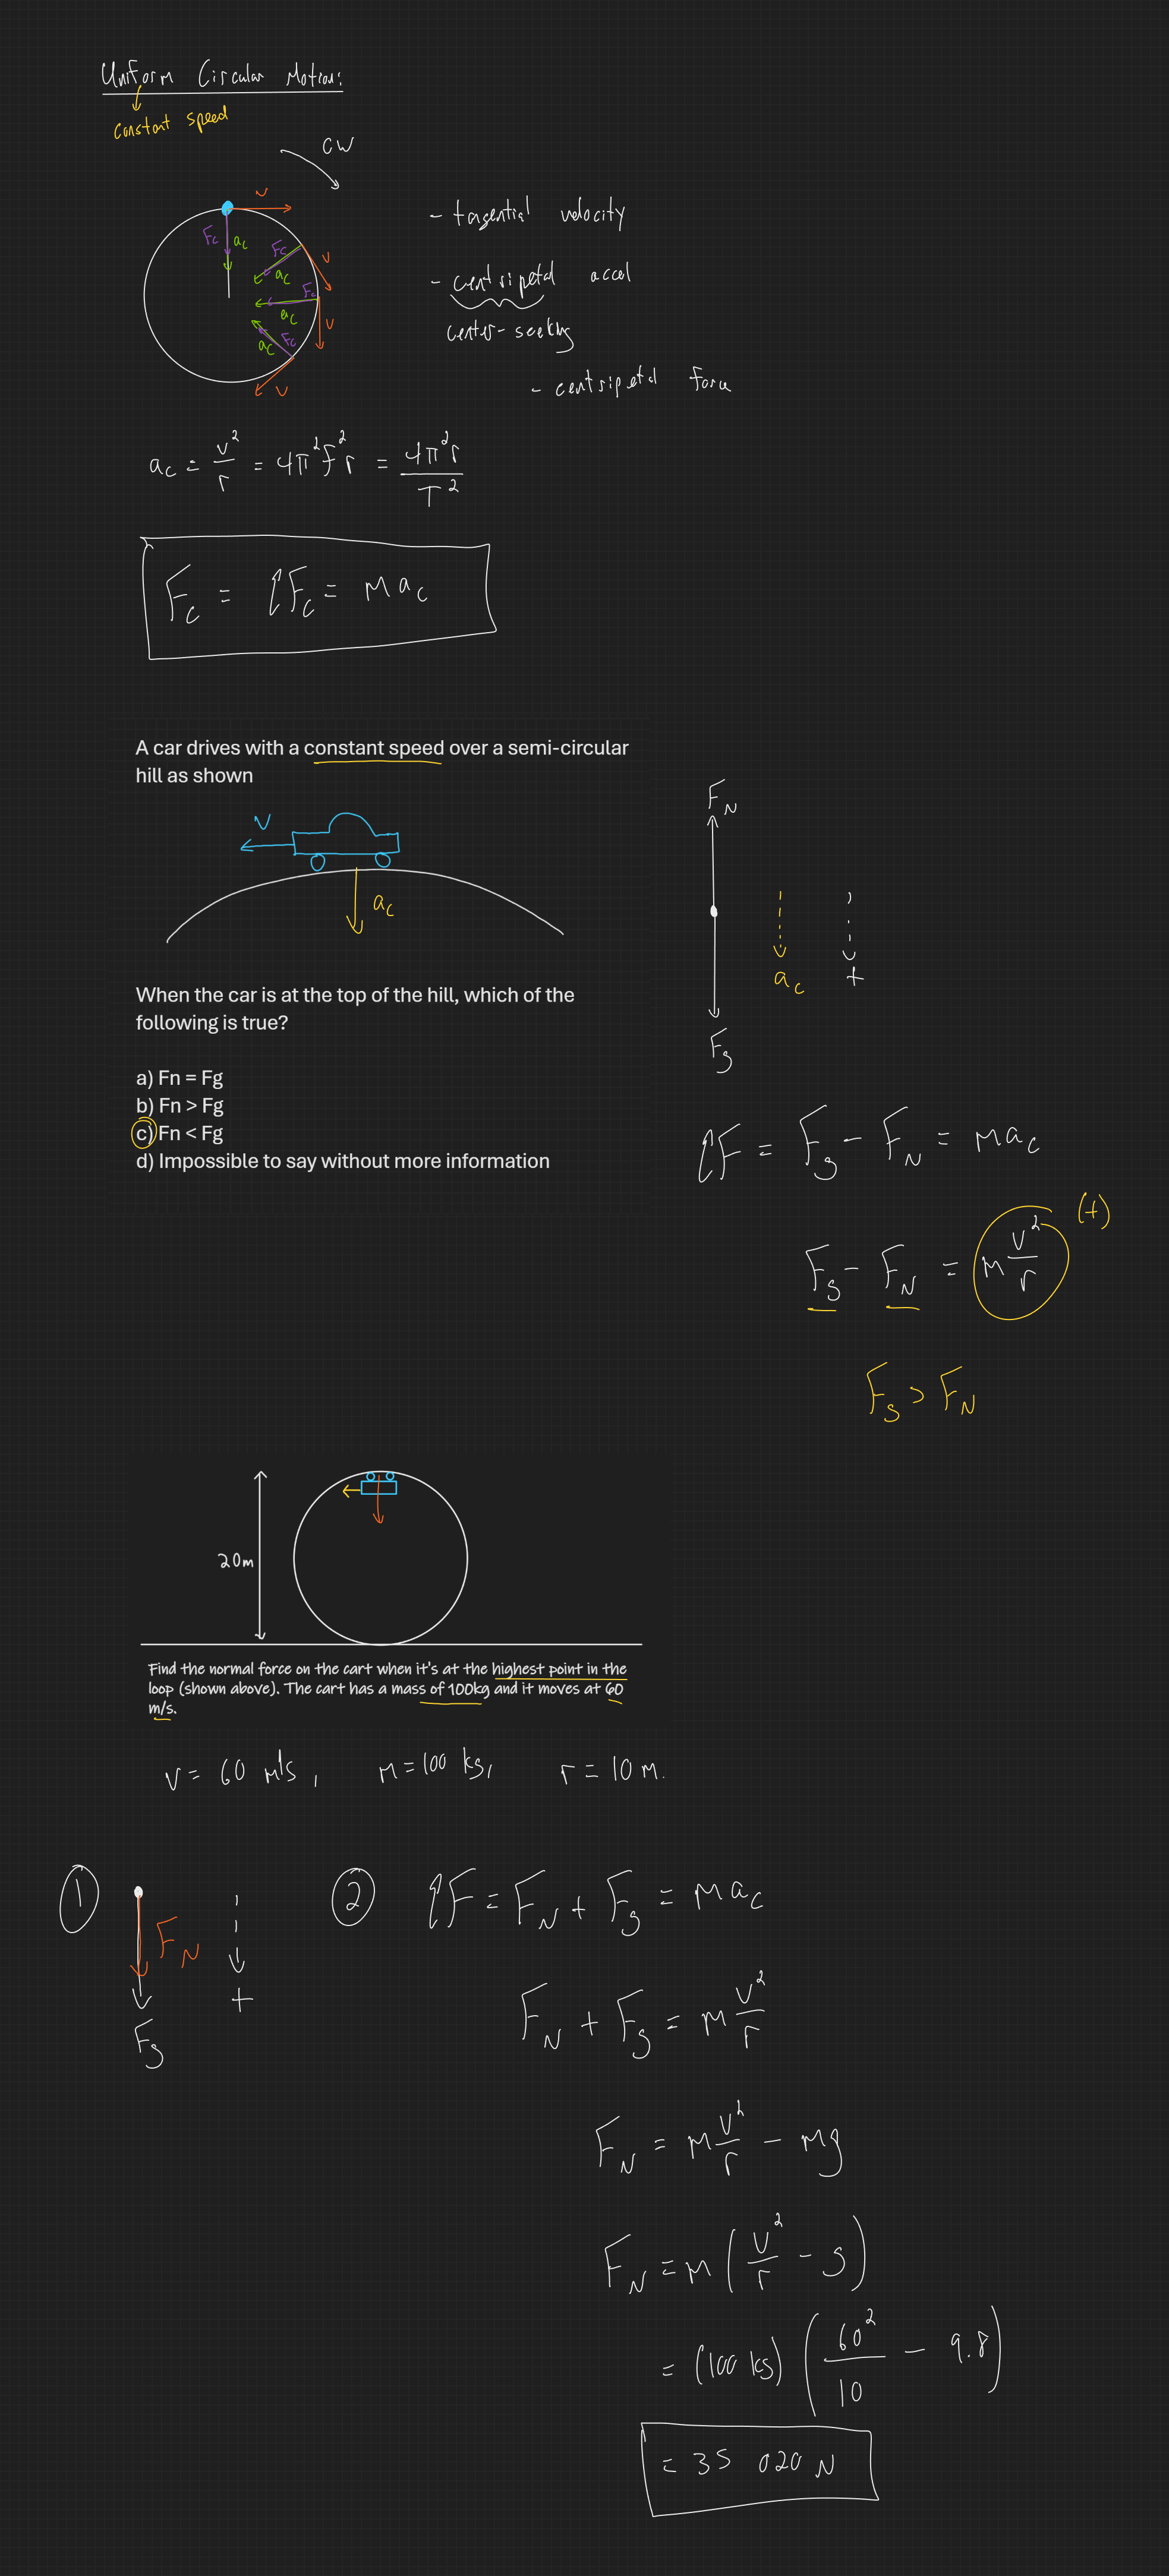 Uniform Circular Motion:
constant speed
CW
v
Fc
ac
Fc
ac
v
Fc
ac
v
Fc
ac
v
- tagential velocity
- centripetal accel
center-seeking
- centripetal force
ac = v²/r = 4π²f²r = 4π²r/T²
Fc = ΣFc = mac
A car drives with a constant speed over a semi-circular
hill as shown
v
ac
When the car is at the top of the hill, which of the
following is true?
a) Fn = Fg
b) Fn > Fg
c) Fn < Fg
d) Impossible to say without more information
FN
ac
+
Fg
ΣF = Fg - FN = mac
Fg - FN = m v²/r (+)
Fg > FN
20m
Find the normal force on the cart when it's at the highest point in the
loop (shown above). The cart has a mass of 100kg and it moves at 60
m/s.
v = 60 m/s, m = 100 kg, r = 10 m.
①
FN
+
Fg
② ΣF = FN + Fg = mac
FN + Fg = m v²/r
FN = m v²/r - mg
FN = m (v²/r - g)
= (100 kg) (60²/10 - 9.8)
= 35 020 N